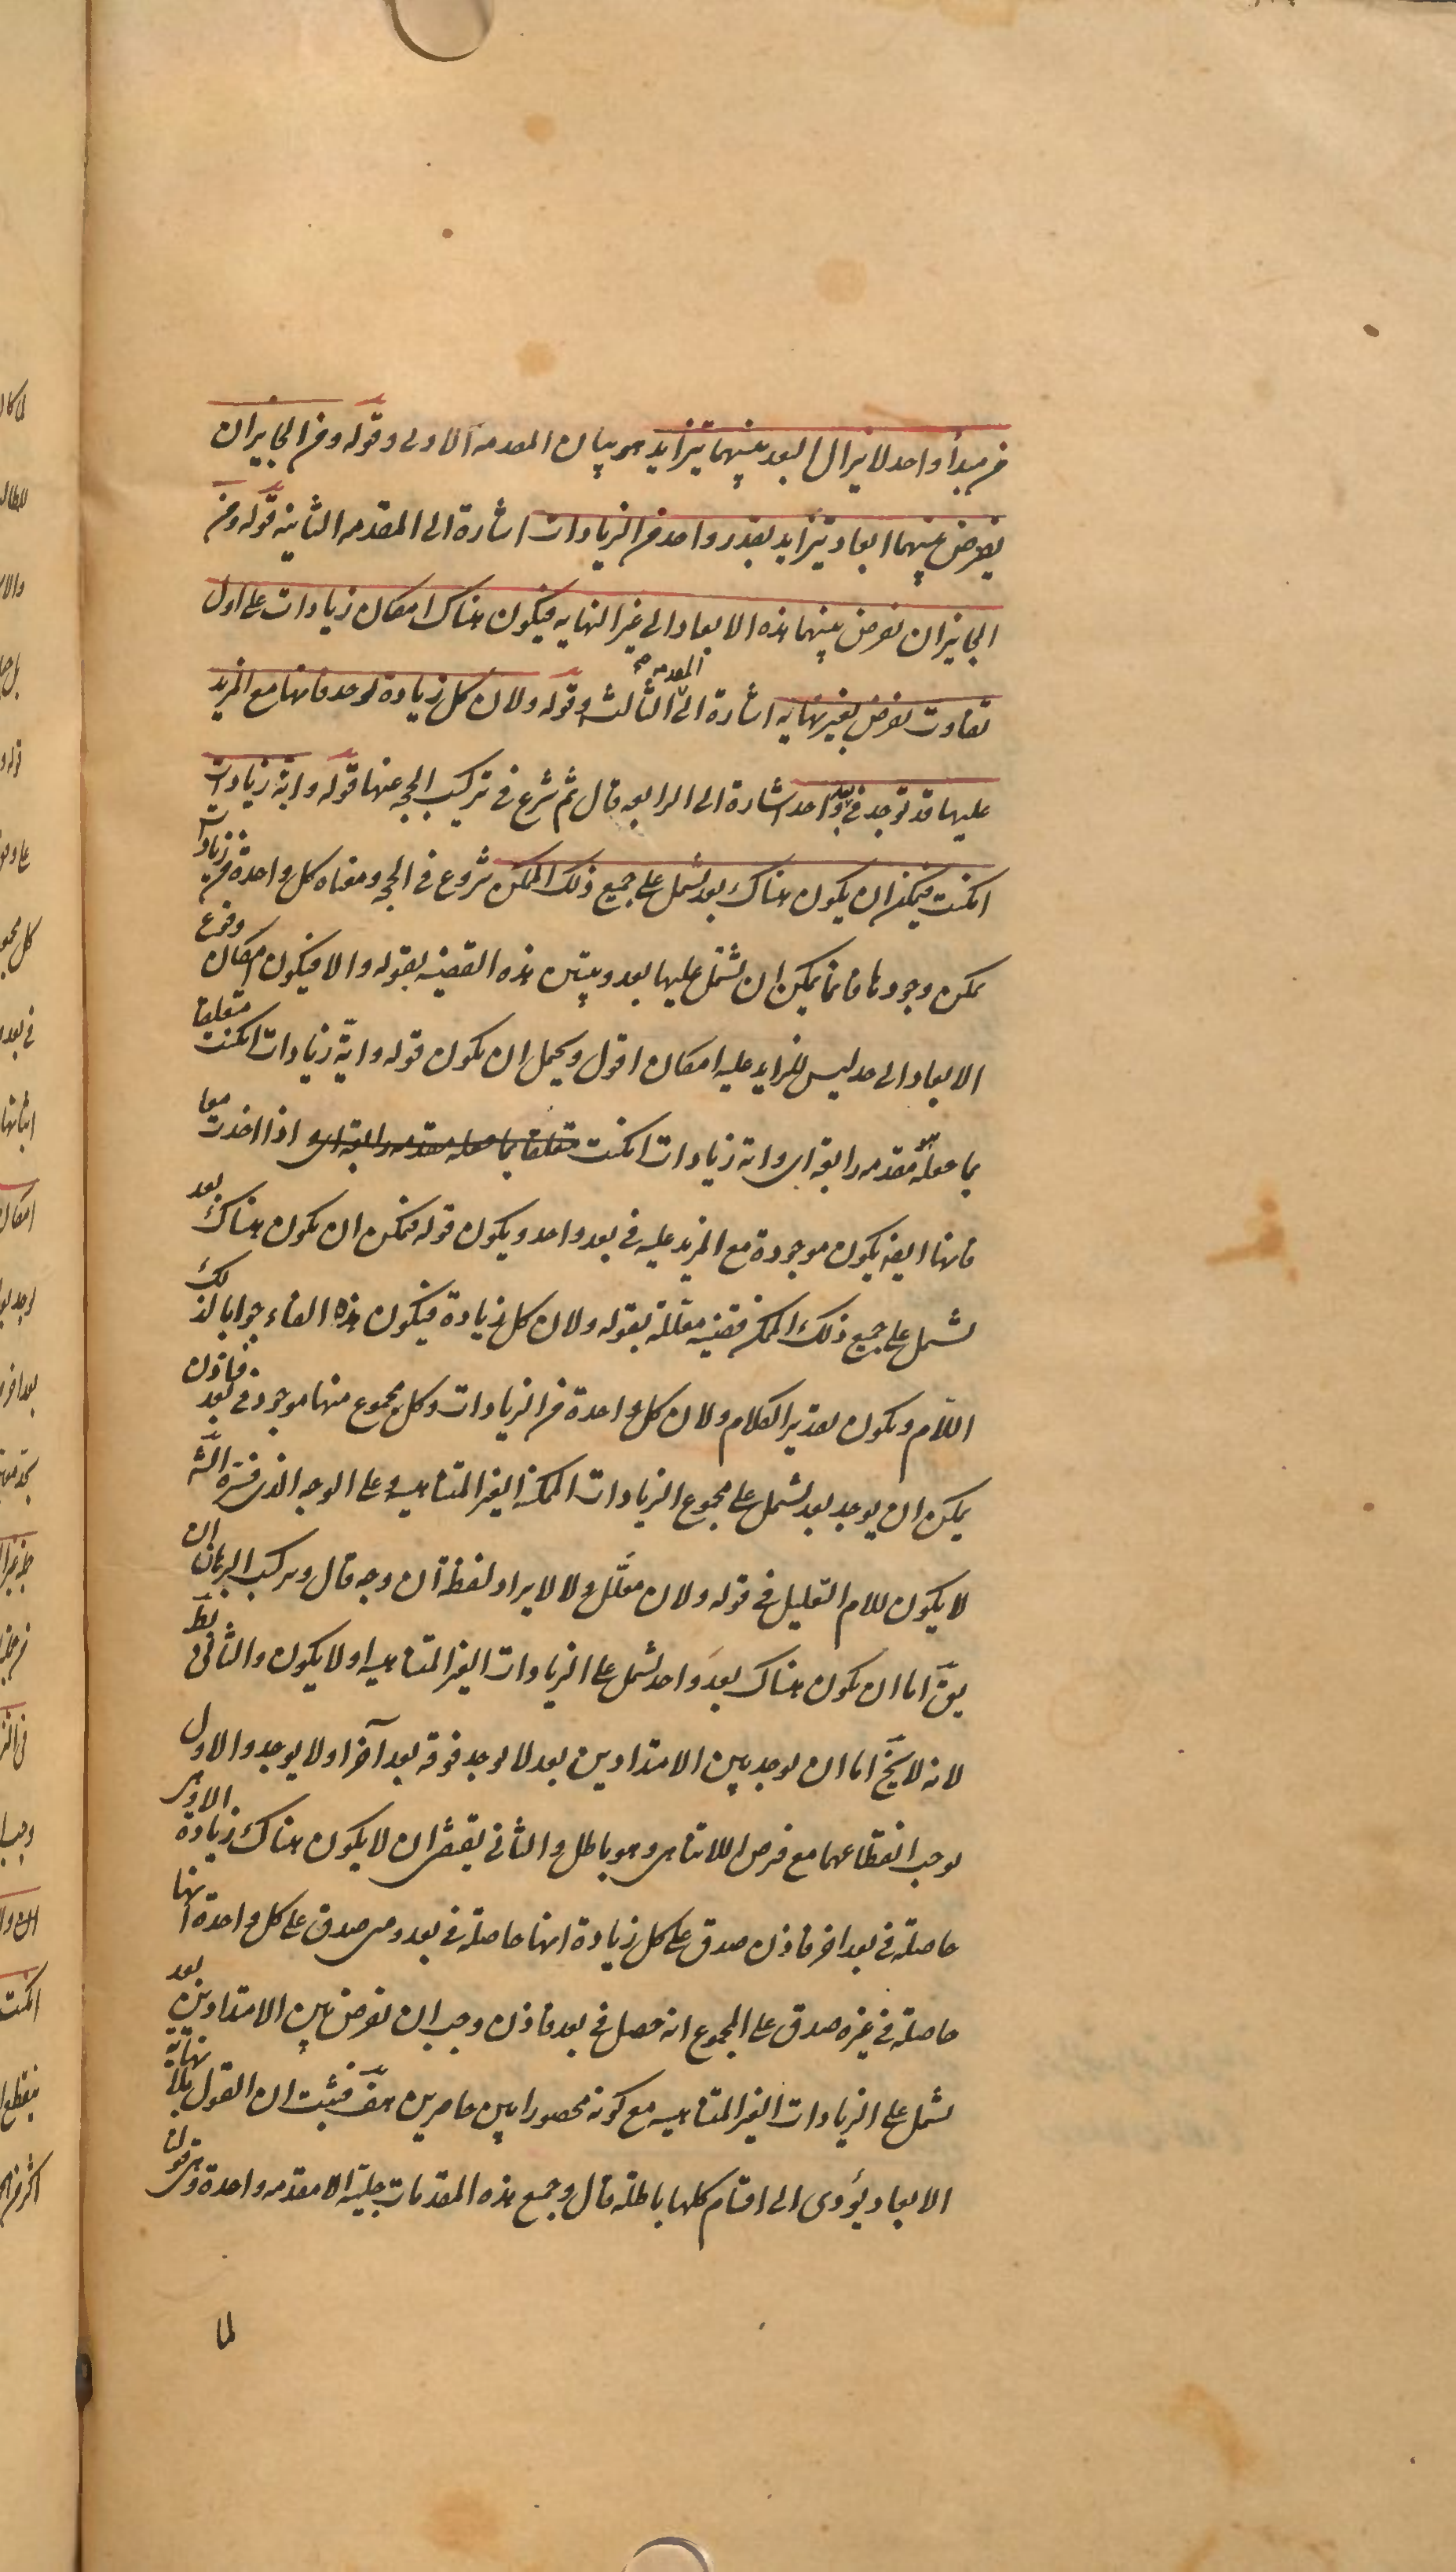 من مبدأ واحد لا يزال البعد بينهما يتزايد هو بيان المقدمه الاولى وقوله ومن الجايز ان
يفرض بينهما ابعاد يتزايد بقدر واحد من الزيادات اشارة الى المقدمه الثانيه قوله ومن
الجايز ان نفرض بينهما هذه الابعاد الى غير النهايه فيكون هناك امكان زيادات على اول
تفاوت نفرض بغير نهايه اشارة الى المقدمه الثالثه وقوله ولان كل زيادة توجد فانها مع المزيد
عليها قد توجد في بعد واحد اشارة الى الرابعه قال ثم شرع في تركيب الحجه عنها قوله واية زيادات
امكنت فيمكن ان يكون هناك بعد يشمل على جميع ذلك الممكن شروع في الحجه ومعناه كل واحدة من زيادات
يمكن وجودها فانما يمكن ان يشتمل عليها بعد ويبين هذه القضيه بقوله والا فيكون امكان وقوع
الابعاد الى حد ليس للزايد عليه امكان اقول ويحمل ان يكون قوله واية زيادات امكنت متعلقا
بما جعله مقدمه رابعة اى واية زيادات امكنت متعلقا بما جعله مقدمه رابعة اى اذا اخذت معا
فانها ايضا يكون موجودة مع المزيد عليه في بعد واحد ويكون قوله فيمكن ان يكون هناك بعد
يشمل على جميع ذلك الممكن قضيه معللة بقوله ولان كل زيادة فيكون هذه الفاء جوابا لذلك
اللام ويكون تقدير الكلام ولان كل واحدة من الزيادات وكل مجموع منها موجود في بعد فاذن
يمكن ان يوجد بعد يشمل على مجموع الزيادات الممكنة الغير المتناهيه وعلى الوجه الذى فسره الش
لا يكون للام التعليل في قوله ولان معلل ولا لايراد لفظة ان وجه قال وتركيب البرهان ان
يق اما ان يكون هناك بعد واحد يشمل على الزيادات الغير المتناهيه او لا يكون والثانى بط
لانه لا يخ اما ان يوجد بين الامتدادين بعد لا يوجد فوقه بعد آخر او لا يوجد والاول
يوجب انقطاعهما مع فرض اللاتناهى وهو باطل والثانى يقتضى ان لا يكون هناك زيادة الا وهى
حاصلة في بعد اخر فاذن صدق على كل زيادة انها حاصلة في بعد ومتى صدق على كل واحدة انها
حاصلة في غيره صدق على المجموع انه حصل في بعد فاذن وجب ان نفرض بين الامتدادين بعد
يشمل على الزيادات الغير المتناهيه مع كونه محصورا بين حاصرين هف فثبت ان القول بلا نهاية
الابعاد يؤدى الى اقسام كلها باطلة قال وجميع هذه المقدمات جلية الا مقدمه واحدة وهى قولنا
لما